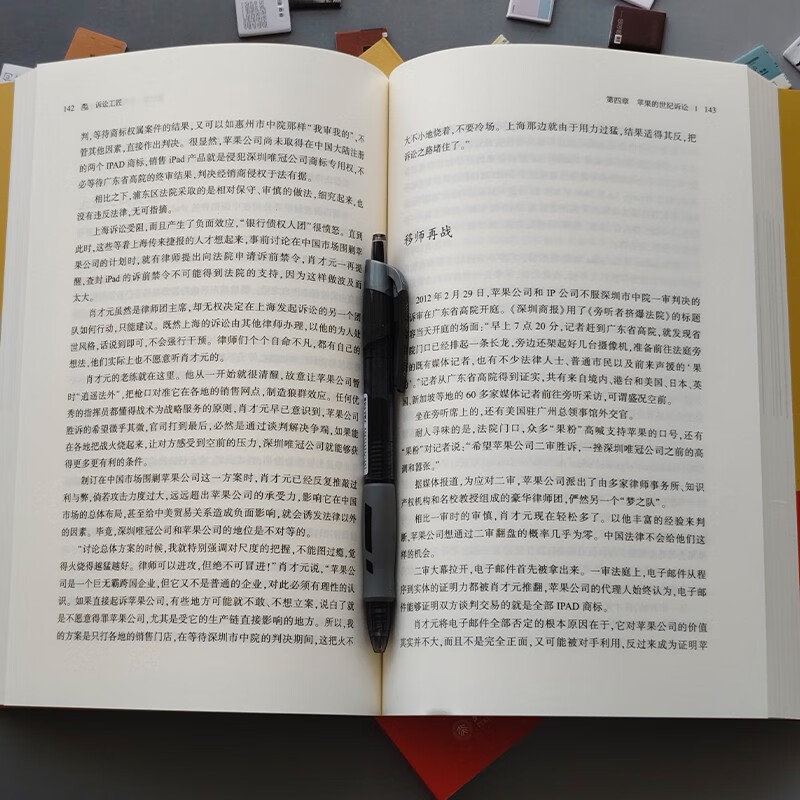 142 诉讼工匠
判,等待商标权属案件的结果,又可以如惠州市中院那样“我审我的”,不
管其他因素,直接作出判决。很显然,苹果公司尚未取得在中国大陆注册
的两个 IPAD 商标,销售 iPad 产品就是侵犯深圳唯冠公司商标专用权,不
必等待广东省高院的终审结果,判决经销商侵权于法有据。
相比之下,浦东区法院采取的是相对保守、审慎的做法,细究起来,也
没有违反法律,无可指摘。
上海诉讼受阻,而且产生了负面效应,“银行债权人团”很愤怒。直到
此时,这些等着上海传来捷报的人才想起来,事前讨论在中国市场围剿苹
果公司的计划时,就有律师提出向法院申请诉前禁令,肖才元一再提
醒,查封 iPad 的诉前禁令不可能得到法院的支持,因为这样做波及面
太大。
肖才元虽然是律师团主席,却无权决定在上海发起诉讼的另一个团
队如何行动,只能建议。既然上海的诉讼由其他律师办理,以他的为人处
世风格,话说到即可,不会强行干预。律师们个个自命不凡,都有自己的
想法,他们实际上也不愿意听肖才元的。
肖才元的老练就在这里。他从一开始就很清醒,故意让苹果公司暂
时“逍遥法外”,把枪口对准它在各地的销售网点,制造狼群效应。任何优
秀的指挥员都懂得战术为战略服务的原则,肖才元早已意识到,苹果公司
胜诉的希望微乎其微,官司打到最后,必然是通过谈判解决争端,如果能
在各地把战火烧起来,让对方感受到空前的压力,深圳唯冠公司就能够获
得更多更有利的条件。
制订在中国市场围剿苹果公司这一方案时,肖才元已经反复推敲过
利与弊,倘若攻击力度过大,远远超出苹果公司的承受力,影响它在中国
市场的总体布局,甚至给中美贸易关系造成负面影响,就会诱发法律以外
的因素。毕竟,深圳唯冠公司和苹果公司的地位是不对等的。
“讨论总体方案的时候,我就特别强调对尺度的把握,不能图过瘾,觉
得火烧得越猛越好。律师可以进攻,但绝不可冒进!”肖才元说,“苹果公
司是一个巨无霸跨国企业,但它又不是普通的企业,对此必须有理性的认
识。如果直接起诉苹果公司,有些地方可能就不敢、不想立案,说白了就
是不愿意得罪苹果公司,尤其是受它的生产链直接影响的地方。所以,我
的方案是只打各地的销售门店,在等待深圳市中院的判决期间,这把火不
第四章 苹果的世纪诉讼 143
大不小地烧着,不要冷场。上海那边就由于用力过猛,结果适得其反,把
诉讼之路堵住了。”
移师再战
2012 年 2 月 29 日,苹果公司和 IP 公司不服深圳市中院一审判决的
诉审在广东省高院开庭。《深圳商报》用了《旁听者挤爆法院》的标题
容当天开庭的场面:“早上 7 点 20 分,记者赶到广东省高院,就发现省
院门口已经排起一条长龙,旁边还架起好几台摄像机,准备前往法庭旁
的既有媒体记者,也有不少法律人士、普通市民以及前来声援的‘果
’。”记者从广东省高院得到证实,共有来自境内、港台和美国、日本、英
国、新加坡等地的 60 多家媒体记者前往旁听采访,可谓盛况空前。
坐在旁听席上的,还有美国驻广州总领事馆外交官。
耐人寻味的是,法院门口,众多“果粉”高喊支持苹果的口号,还有
“果粉”对记者说:“希望苹果公司二审胜诉,一挫深圳唯冠公司之前的高
调和嚣张。”
据媒体报道,为应对二审,苹果公司派出了由多家律师事务所、知识
产权机构和名校教授组成的豪华律师团,俨然另一个“梦之队”。
相比一审时的审慎,肖才元现在轻松多了。以他丰富的经验来判
断,苹果公司想通过二审翻盘的概率几乎为零。中国法律不会给他们这
样的机会。
二审大幕拉开,电子邮件首先被拿出来。一审法庭上,电子邮件从程
序到实体的证明力都被肖才元推翻,苹果公司的代理人始终认为,电子邮
件能够证明双方谈判交易的就是全部 IPAD 商标。
肖才元将电子邮件全部否定的根本原因在于,它对苹果公司的价值
其实并不大,而且不是完全正面,又可能被对手利用,反过来成为证明苹